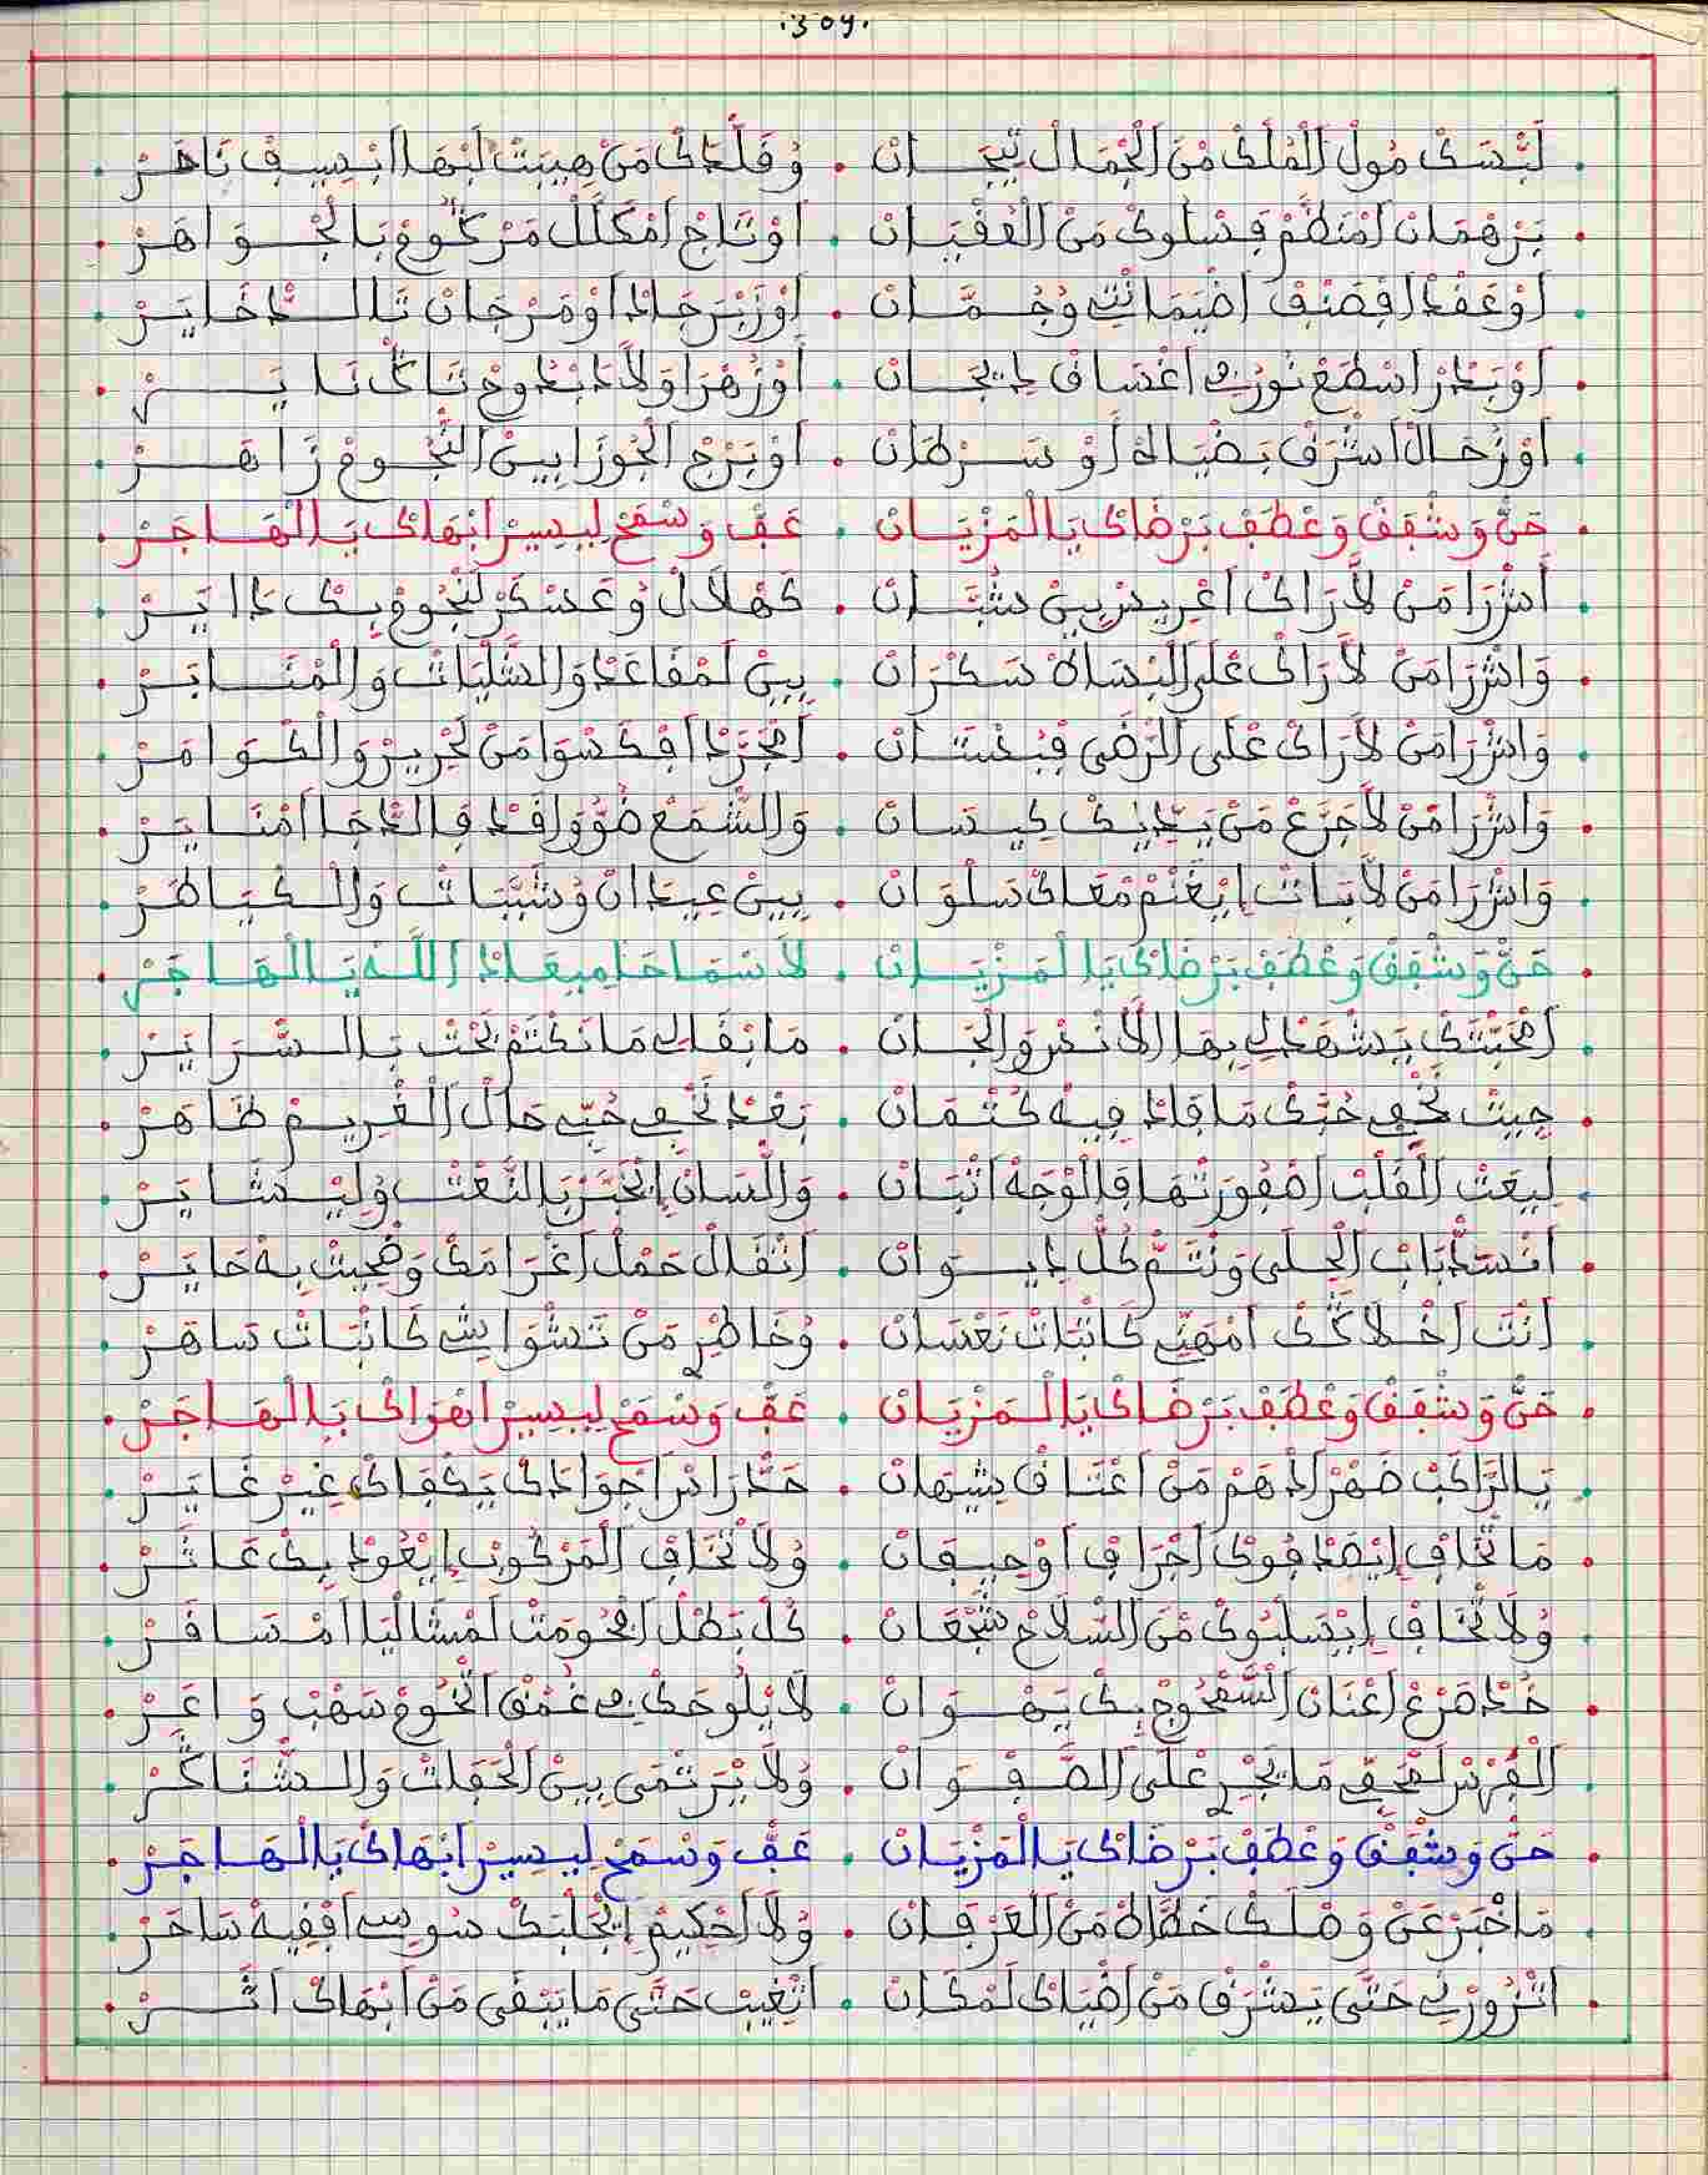 .309.
. لبسك مول الملك من الجمال تيجان . وقلدك من هيبت لبها ابسيف ناهر .
. برهمان امنظم فسلوك من العقيان . اوتاج امكلل مركوم بالجواهر .
. اوعقد افصنف اضيمانتي وجمان . اوزبرجاد اومرجان تالدخاير .
. اوبدر اسطع نور في اغساق ديجان . اوزهرا ولادا بدوح ناير .
. اوزحال اشرق بضياه أو سرطان . اوبرج الجوزا بين النجوم زاهر .
. حن وشفق وعطف برضاك يالمزيان . عف وسمح ليسير ابهاك يالهاجر .
. اشرا من لا راك اغريس بين شبان . كهلال وعسكر لنجوم بك داير .
. وانشرا من لا راك على البساط سكران . بين لمقاعد والشليات والمنابر .
. وانشرا من لا راك على الرضى فبغستان . اتجرد افكسوا من لحرير والكوامر .
. وانشرا من لا جرع من يديك كيسان . والشمع ضوو افد فالدجا امناير .
. وانشرا من لا بات ايغنم معاك سلوان . بين عيدان وشببات والكياطر .
. حن وشفق وعطف برضاك يالمزيان . لا سماحا ميعاد الله يالهاجر .
. امحبتك يشهد لي بها الانس والجان . ما بقالي ما نكتم بحت بالسراير .
. جيت نخفي حبك ما فاد فيه كتمان . بعد نخفي حبي حال الغريم ظاهر .
. ليعت القلب اصفورتها فالوجه اتبان . واللسان ايخبر بالنعت وليشاير .
. انسد باب الحلى ونتم كل ديوان . انقال حمل اغرامك وضحيت به حاير .
. انت اخلاكك امهني كاتبات نعسان . وخاطر من تشوايشي كانبات ساهر .
. حن وشفق وعطف برضاك يالمزيان . عف وسمح ليسير اهواك يالهاجر .
. يالراكب ضهر ادهم من اعتاق شيهان . حدراس اجوادك يكفاك غير غاير .
. ما تخاف ايصدفوك اجراف اوحيفان . ولا تخاف المركوب ايعود بك عاثر .
. ولا تخاف ايسلبوك من السلاح شجعان . كل بطل افحومت لمثاليا امسافر .
. خد صرع اعنان السمحوج بك يهوان . لا يلوحك في غمق التخوم سهب واعر .
. الفرس لصحفي ما يجري على الصفوان . ولا يرتمى بين الحفات والشناكر .
. حن وشفق وعطف برضاك يالمزيان . عف وسمح ليسير ابهاك يالهاجر .
. ما خبر عن وصلك خطاط من العرفان . ولا احكيم ايجلبك سوسي افقيه ساحر .
. اتزورني حتى يشرق من اضياك لمكان . اتغيب حتى ما يبقى من ابهاك اثر .